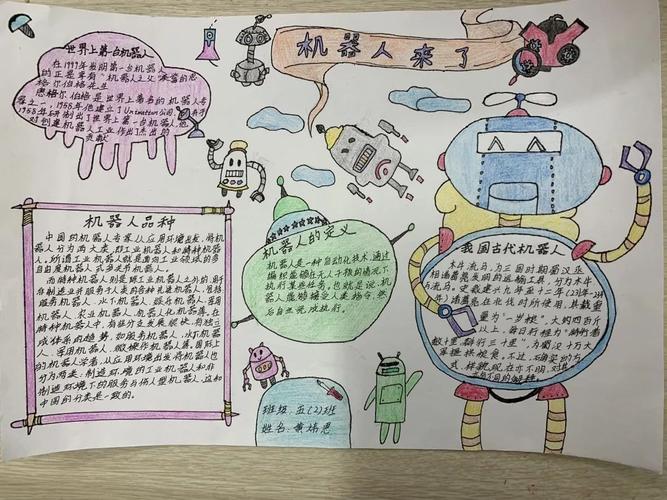 机器人来了
世界上第一台机器人
在1959年发明第一台机器人
的正是享有“机器人之父”美誉的恩
格尔伯格先生
恩格尔伯格是世界上著名的机器人专
家之一，1958年他建立了Unimation公司，并于
1959年研制出了世界上第一台机器人，他
对创建机器人工业作出了杰出的
贡献
机器人品种
中国的机器人专家从应用环境出发，将机
器人分为两大类，即工业机器人和特种机器
人。所谓工业机器人就是面向工业领域的多
自由度机器人。
而特种机器人则是除工业机器人之外的，用于
非制造业并服务于人类的各种先进机器人，包括
服务机器人、水下机器人、娱乐机器人、军用
机器人、农业机器人、机器人化机器等。在
特种机器人中，有些分支发展很快，有独立
成体系的趋势，如服务机器人、水下机器
人、军用机器人、微操作机器人等。国际上
的机器人学者，从应用环境出发将机器人也
分为两类：制造环境下的工业机器人和非
制造环境下的服务与仿人型机器人，这和
中国的分类是一致的。
机器人的定义
机器人是一种自动化技术，通过
编程能够在无人干预的情况下
执行某些任务。也就是说，机
器人能够接受人类指令，然
后自主完成执行。
我国古代机器人
木牛流马，为三国时期蜀汉丞
相诸葛亮发明的运输工具，分为木牛
与流马。史载建兴九年至十二年（231年-234
年）诸葛亮在北伐时所使用，其载重
量为“一岁粮”，大约四百斤
以上，每日行程为“特行者
数十里，群行三十里”，为蜀汉十万大
军提供粮食。不过，确实的方
式、样貌现在亦不明，对其
亦有不同的解释。
班级：五（2）班
姓名：黄炜恩